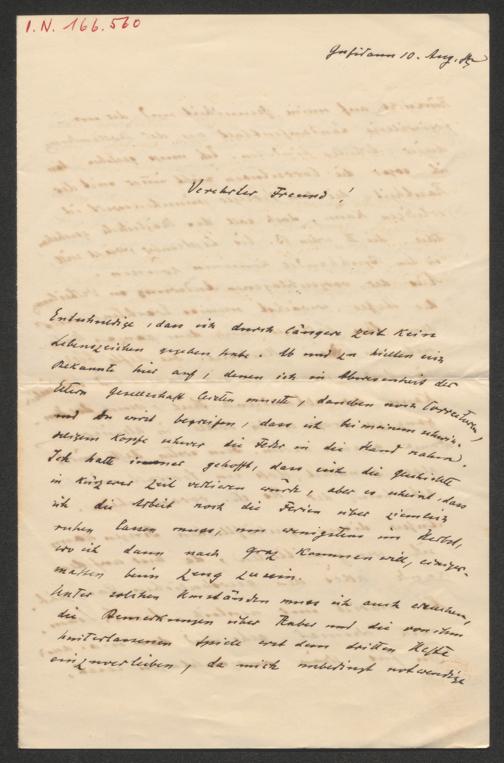 I.N. 166.560
Gufidaun 10. Aug.
Verehrter Freund!
Entschuldige, dass ich durch längere Zeit kein
Lebenszeichen gegeben habe. Ab und zu hielten sich
Bekannte hier auf, denen ich in Abwesenheit der
Eltern Gesellschaft leisten musste, daneben noch Correcturen,
und Du wirst begreifen, dass ich bei meinem schwin-
deligen Kopfe schwer die Feder in die Hand nahm.
Ich hatte immer gehofft, dass sich die Geschichte
in kürzerer Zeit verlieren würde, aber es scheint, dass
ich die Arbeit noch die Ferien über ziemlich
ruhen lassen muss, um wenigstens im Herbst,
wo ich dann nach Graz kommen will, einiger-
massen beim Zeug zu sein.
Unter solchen Umständen muss ich auch ersuchen,
die Bemerkungen über Raber und die von ihm
hinterlassenen Spiele erst dem dritten Hefte
einzuverleiben, da mich unbedingt notwendige